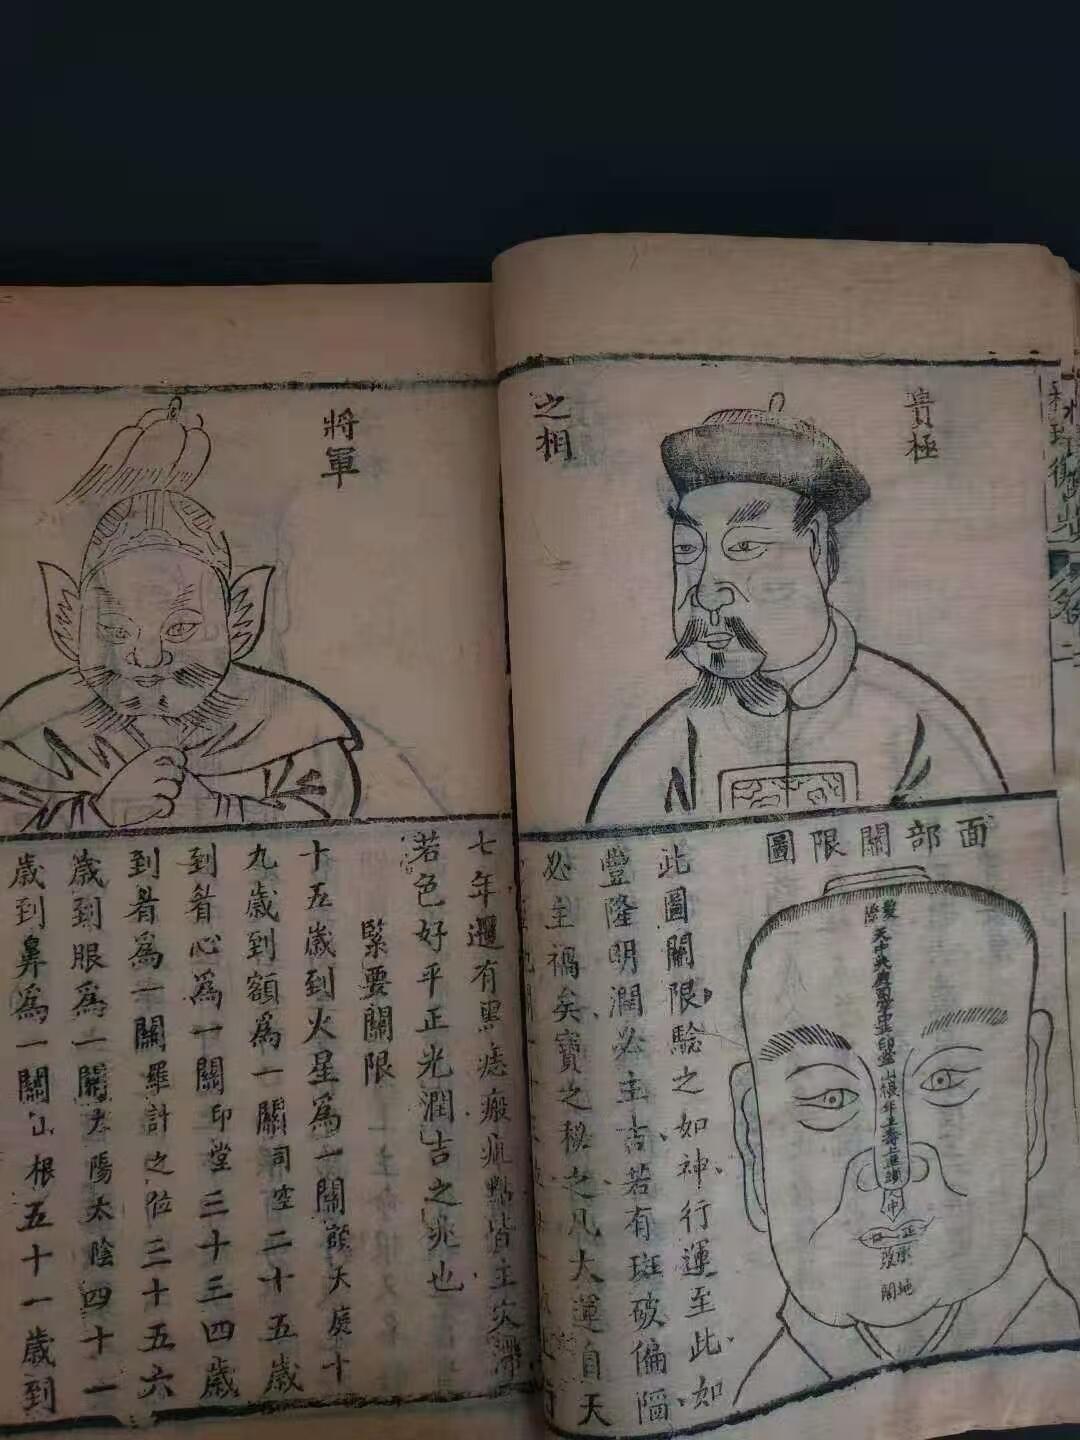 貴極
之相
面部關限圖
此圖關限驗之如神行運至此如
豐隆明潤必主吉若有斑破偏陷
必主禍矣寶之秘之凡大運自天
髮際
天中
天庭
司空
中正
印堂
山根
年上
壽上
準頭
人中
正口
承漿
地閣
將軍
七年還有黑痣瘢疵點皆主災滯
若色好平正光潤吉之兆也
緊要關限
十五歲到火星為一關額天庭十
九歲到額為一關司空二十五歲
到眉心為一關印堂三十三四歲
到眉為一關羅計之位三十五六
歲到眼為一關太陽太陰四十一
歲到鼻為一關山根五十一歲到
卷二